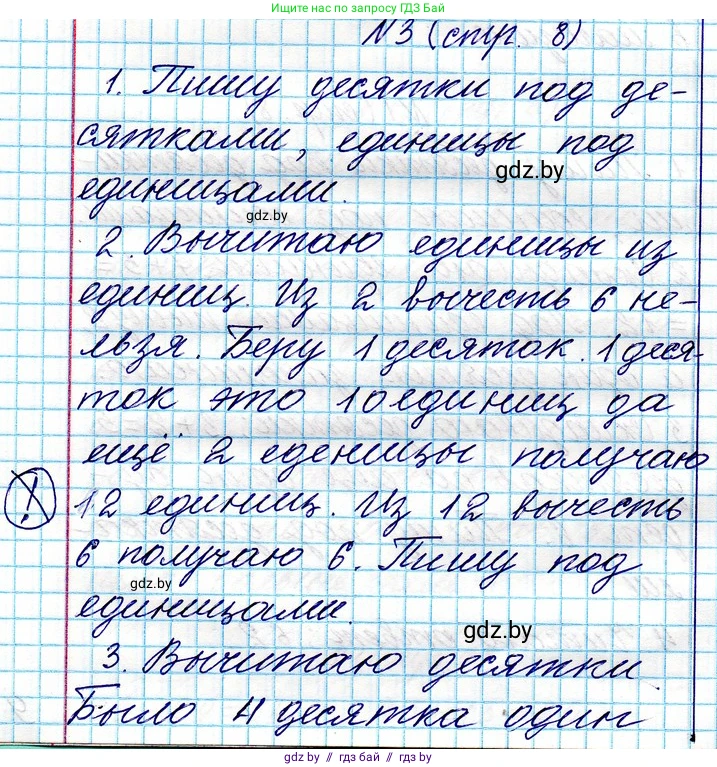 Ищите нас в поиске по запросу ГДЗ Бай
№3 (стр. 8)
1. Пишу десятки под де-
сятками, единицы под
gdz.by
единицами.
gdz.by
2. Вычитаю единицы из
единиц. Из 2 вычесть 6 не-
льзя. Беру 1 десяток. 1 деся-
ток это 10 единиц да
ещё 2 еденицы получаю
12 единиц. Из 12 вычесть
6 получаю 6. Пишу под
gdz.by
единицами.
gdz.by
3. Вычитаю десятки.
Было 4 десятка один
gdz.by // гдз бай // gdz.by